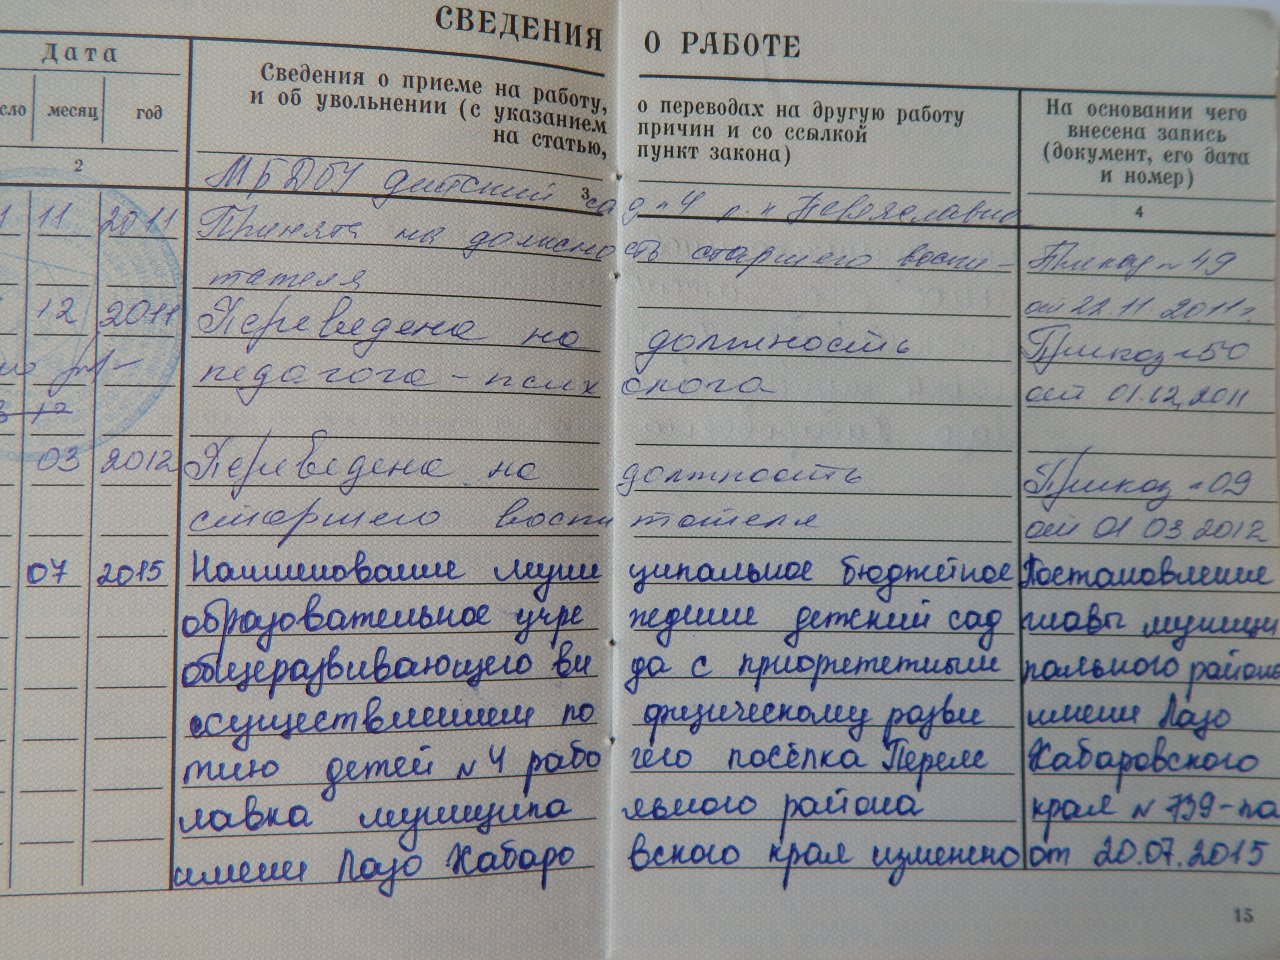 СВЕДЕНИЯ О РАБОТЕ
Дата
сло месяц год
Сведения о приеме на работу, о переводах на другую работу
и об увольнении (с указанием причин и со ссылкой
на статью, пункт закона)
На основании чего
внесена запись
(документ, его дата
и номер)
2 3 4
МБДОУ детский сад №4 р.п Переяславка
11 2011 Принята на должность старшего воспи- Приказ №49
тателя от 22.11 2011г.
12 2011 Переведена на должность Приказ №50
педагога-психолога от 01.12.2011
03 2012 Переведена на должность Приказ №09
старшего воспитателя от 01 03 2012
07 2015 Наименование муниципальное бюджетное Постановление
образовательное учреждение детский сад главы муници
общеразвивающего вида с приоритетным пального района
осуществлением по физическому разви имени Лазо
тию детей №4 рабочего посёлка Переяс Хабаровского
лавка муниципального района края №739-па
имени Лазо Хабаровского края изменено от 20.07.2015
15